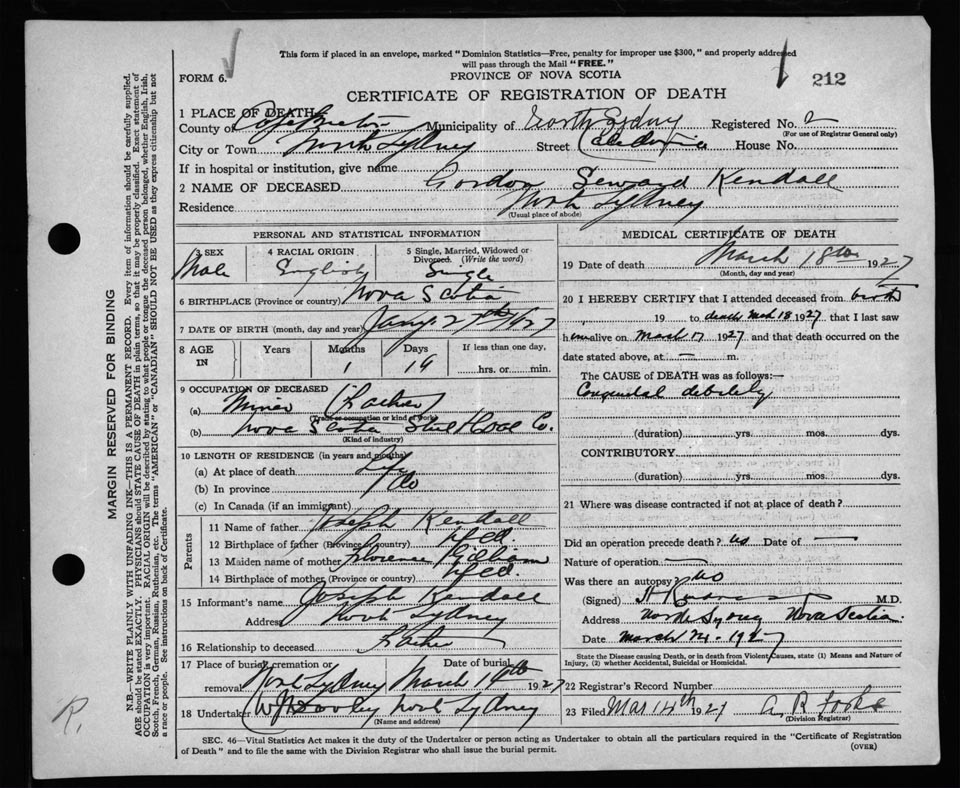 This form if placed in an envelope, marked "Dominion Statistics—Free, penalty for improper use $300," and properly addressed
will pass through the Mail "FREE."
FORM 6.
PROVINCE OF NOVA SCOTIA
212
CERTIFICATE OF REGISTRATION OF DEATH
1 PLACE OF DEATH
County of Cape Breton Municipality of North Sydney Registered No. 2
(For use of Registrar General only)
City or Town North Sydney Street Caledonia House No.
If in hospital or institution, give name
2 NAME OF DECEASED Gordon Seward Kendall
Residence North Sydney
(Usual place of abode)
PERSONAL AND STATISTICAL INFORMATION
3 SEX 4 RACIAL ORIGIN 5 Single, Married, Widowed or
Divorced. (Write the word)
Male English Single
6 BIRTHPLACE (Province or country) Nova Scotia
7 DATE OF BIRTH (month, day and year) Jany 27th 1927
8 AGE IN Years Months Days If less than one day,
1 19 hrs. or min.
9 OCCUPATION OF DECEASED
(a) Miner (Father)
(Trade or occupation or kind of work)
(b) Nova Scotia Steel & Coal Co.
(Kind of industry)
10 LENGTH OF RESIDENCE (in years and months)
(a) At place of death Life
(b) In province Do
(c) In Canada (if an immigrant)
Parents
11 Name of father Joseph Kendall
12 Birthplace of father (Province or country) Nfld.
13 Maiden name of mother Florence
14 Birthplace of mother (Province or country) Nfld.
15 Informant's name Joseph Kendall
Address North Sydney
16 Relationship to deceased Father
17 Place of burial, cremation or Date of burial
removal North Sydney March 19th 1927
18 Undertaker North Sydney
(Name and address)
MEDICAL CERTIFICATE OF DEATH
19 Date of death March 18th 1927
(Month, day and year)
20 I HEREBY CERTIFY that I attended deceased from birth
19 to death Mch 18 1927, that I last saw
him alive on March 17 1927 and that death occurred on the
date stated above, at — m.
The CAUSE of DEATH was as follows:—
Congenital debility
(duration) yrs. mos. dys.
CONTRIBUTORY
(duration) yrs. mos. dys.
21 Where was disease contracted if not at place of death?
Did an operation precede death? no Date of —
Nature of operation —
Was there an autopsy? no
(Signed) M.D.
Address North Sydney Nova Scotia
Date March 1927
State the Disease causing Death, or in death from Violent Causes, state (1) Means and Nature of
Injury, (2) whether Accidental, Suicidal or Homicidal.
22 Registrar's Record Number
23 Filed Mar 1927 A R Forbes
(Division Registrar)
SEC. 46—Vital Statistics Act makes it the duty of the Undertaker or person acting as Undertaker to obtain all the particulars required in the "Certificate of Registration
of Death" and to file the same with the Division Registrar who shall issue the burial permit.
(OVER)
MARGIN RESERVED FOR BINDING
N.B.—WRITE PLAINLY WITH UNFADING INK—THIS IS A PERMANENT RECORD. Every item of information should be carefully supplied.
AGE should be stated EXACTLY. PHYSICIANS should STATE CAUSE OF DEATH in plain terms, so that it may be properly classified. Exact statement of
OCCUPATION is very important. RACIAL ORIGIN will be described by stating to what people or tongue the deceased person belonged, whether English, Irish,
Scotch, French, German, Russian, Ruthenian, etc. The terms "AMERICAN" or "CANADIAN" SHOULD NOT BE USED as they express citizenship but not
a race or people. See instructions on back of Certificate.
R.